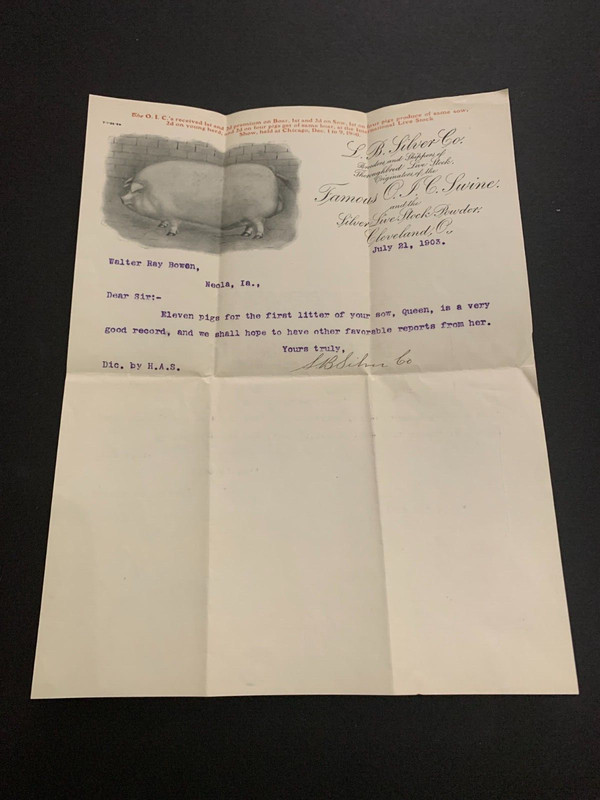 The O. I. C.'s received 1st and 2d premium on Boar, 1st and 2d on Sow, 1st on four pigs produce of same sow;
2d on young herd, and 2d on four pigs get of same boar, at the International Live Stock
Show, held at Chicago, Dec. 1 to 9, 1900.
L. B. Silver Co.
Breeders and Shippers of
Thoroughbred Live Stock.
Originators of the
Famous O. I. C. Swine.
and the
Silver Live Stock Powder.
Cleveland, O.,
July 21, 1903.
Walter Ray Bowen,
Neola, Ia.,
Dear Sir:-
Eleven pigs for the first litter of your sow, Queen, is a very
good record, and we shall hope to have other favorable reports from her.
Yours truly,
Dic. by H.A.S.
L B Silver Co